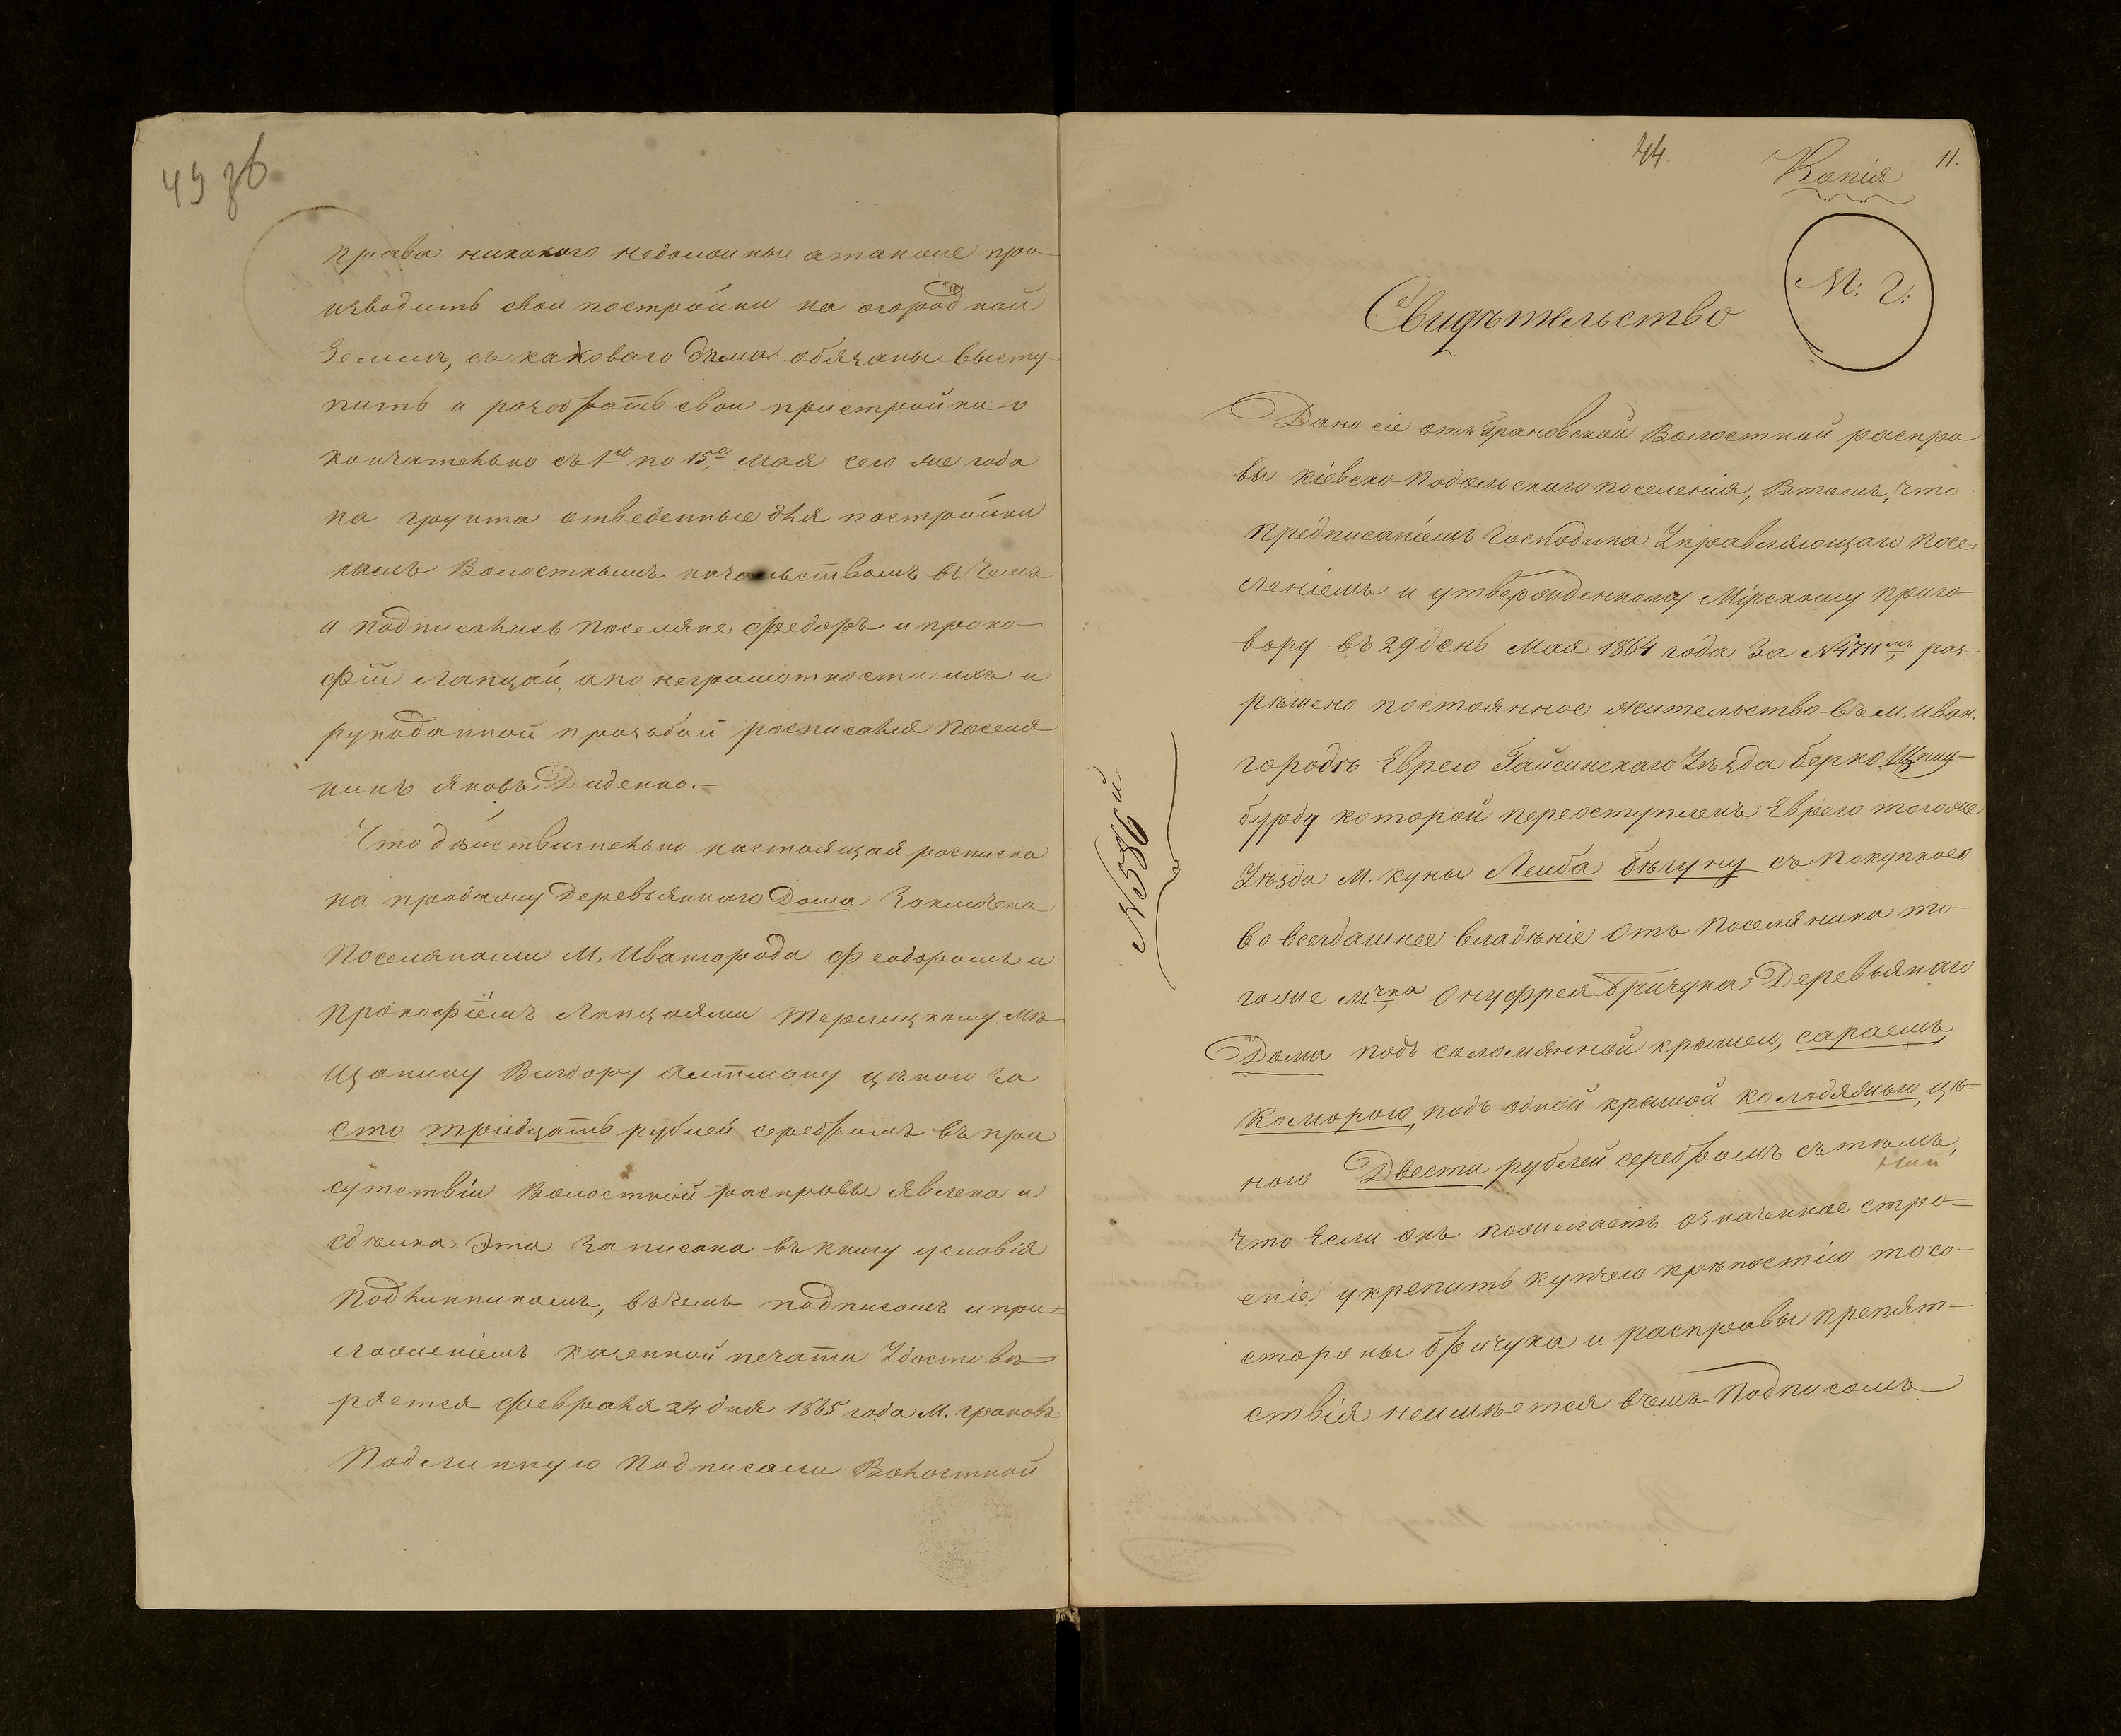 43 зв
права никакого недолоины атакоже про
изводить свои постройки на огородной
Земли, съ каковаго дома обязаны высту-
пить и разобрать свои пристройки о
кончательно съ 1го по 15е мая сего же года
на грунта отведенные для постройки
намъ Волостнымъ начальствомъ въ чемъ
и подписались поселяне Федоръ и проко-
фій Лапцаи, а по неграмотности ихъ и
рукоданной прозьбой росписался поселя
нинъ Яковъ Диденко.—
Что действительно настоящая росписка
на продажу Деревьяннаго Дома Заключена
поселянами М. Ивангорода Феодоромъ и
прокофіемъ Лапцаями Терлицкому мѣ
щанину Вигдору Алтману цѣною за
сто тридцать рублей серебромъ въ при
сутствіи Волостной расправы явлена и
сдѣлка Эта Записана въ книгу условія
подлинникомъ, въ чемъ подписомъ и при=
ложеніемъ казенной печати Удостовѣ=
ряется февраля 24 дня 1865 года М. Грановъ
Подлинную подписали Волостной
44.
Копія
11.
М: П:
Свидѣтельство
Дано сіе отъ Грановской Волостной распра
вы Кіевско Подольскаго поселенія, Втомъ, что
предписаніемъ Господина Управляющаго Посе=
леніемъ и утвержденному Мірскому приго-
вору въ 29 день Мая 1864 года За № 4711мъ раз=
рѣшено постоянное жительство въ м. Иван.
городѣ Еврею Гайсинскаго Уѣзда Берко Шпиц-
бурду которой переоступленъ Еврею тогоже
Уѣзда М. Куны Лейба Бѣгуну съ покупкоео
во всегдашнее владѣніе Отъ Поселянина то-
гоже мчка Онуфрея Бричука Деревьянаго
Дома подъ соломянной крышею, сараемъ
Коморою, подъ одной крышой колодязью, цѣ=
ною Двести рублей серебромъ съ тѣмъ,
что Если онъ пожелаетъ означенное стро=
еніе укрепить купчею крѣпостію то со-
стороны Бричука и расправы препят-
ствія неимѣется вчемъ Подписомъ
№ 586й